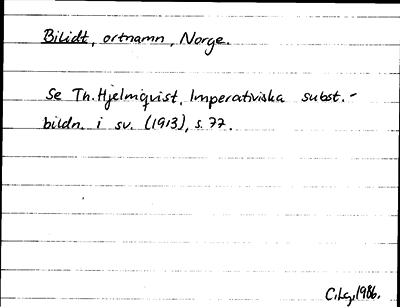 Bilidt, ortnamn, Norge.
Se Th. Hjelmqvist, Imperativiska subst.-
bildn. i sv. (1913), s. 77.
C.Lg. 1986.